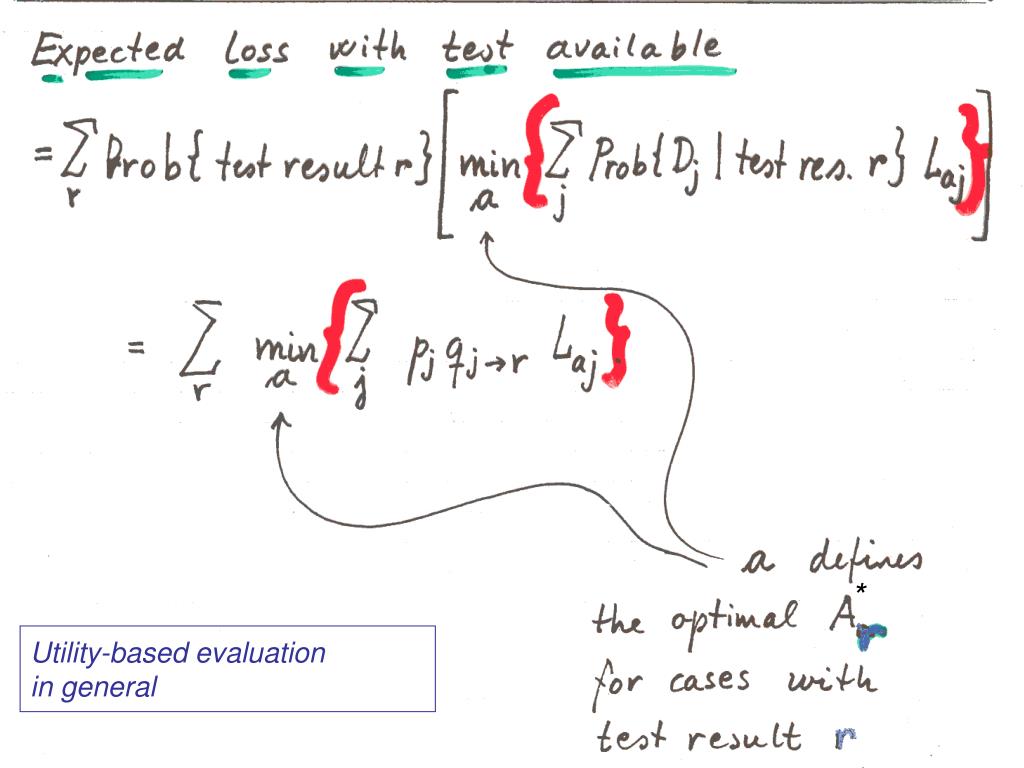 Expected loss with test available
= Σ_r Prob{ test result r } [ min_a { Σ_j Prob{ D_j | test res. r } L_aj } ]
= Σ_r min_a { Σ_j p_j q_j→r L_aj }
a defines
the optimal A*_r
for cases with
test result r
Utility-based evaluation
in general